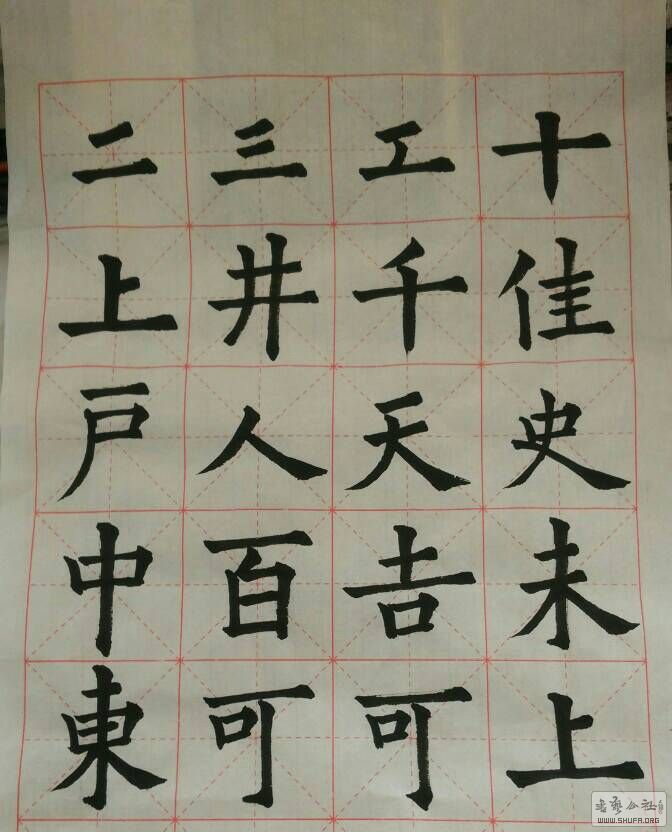 二三工十
上井千佳
戸人天史
中百吉未
東可可上
书艺公社
WWW.SHUFA.ORG